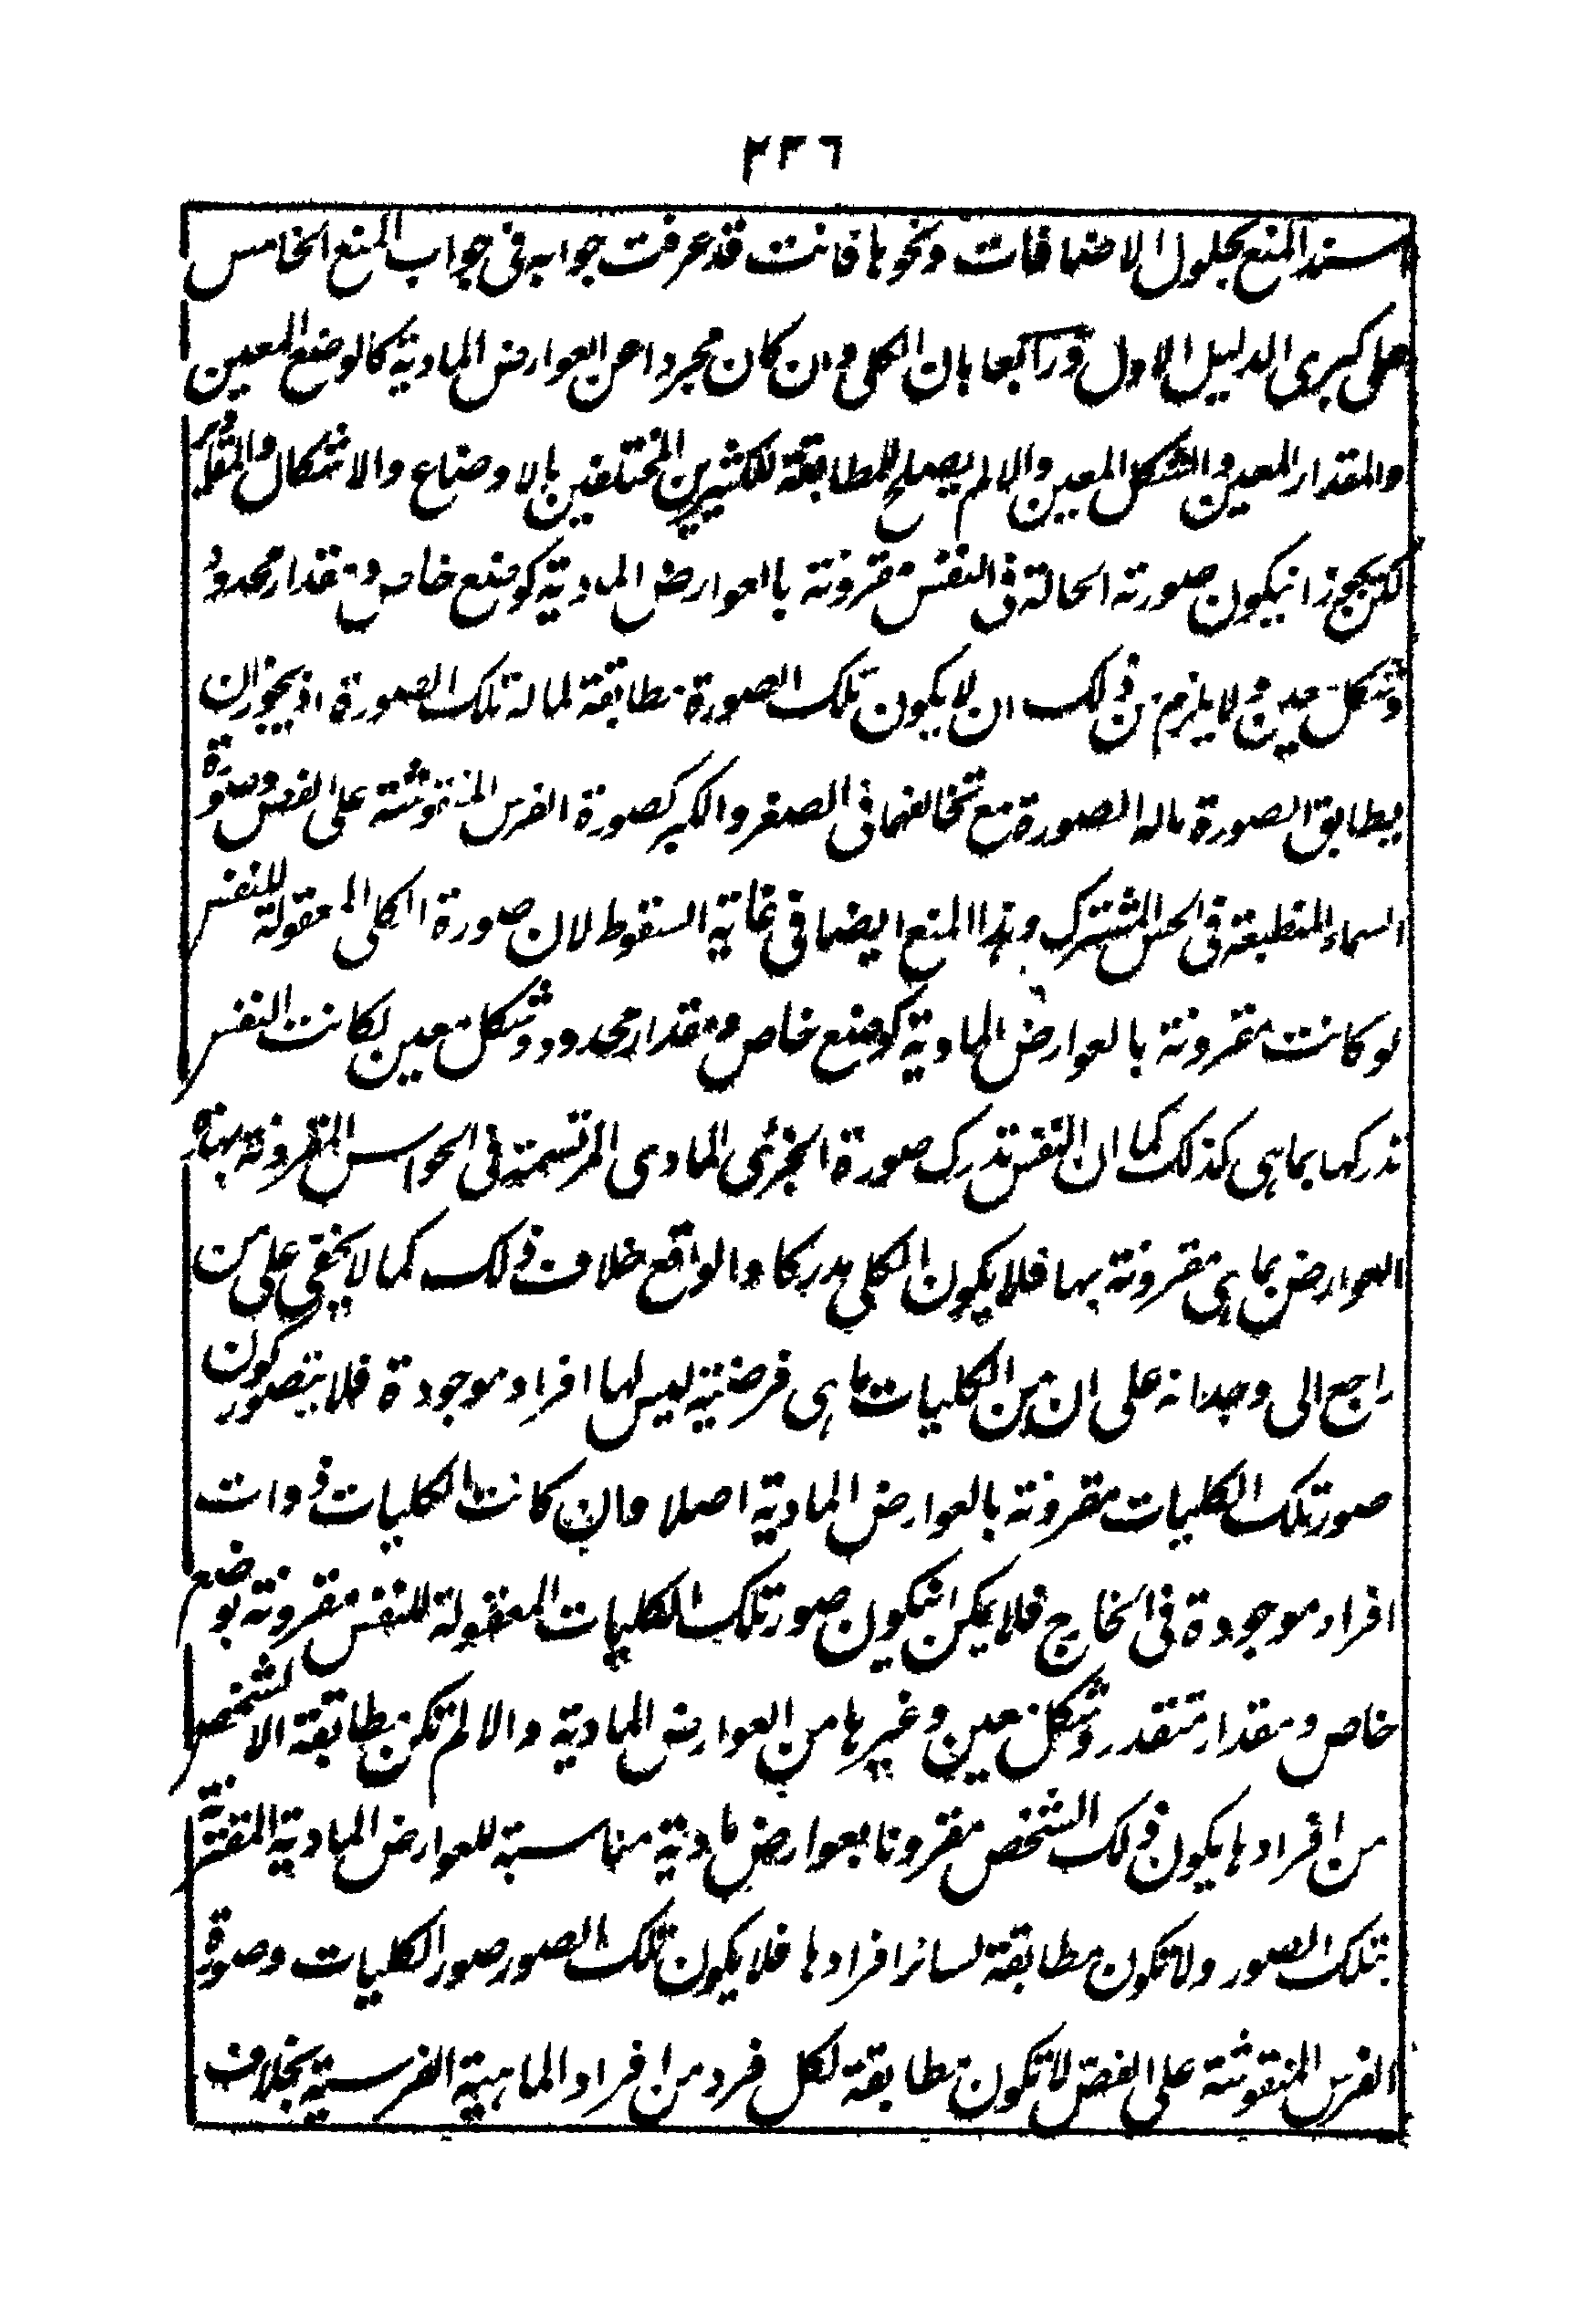 ٢٣٦
سند المنع بحلول الاضافات ونحوها فانت قد عرفت جوابه فى جواب المنع الخامس
على كبرى الدليل الاول ورابعا بان الكلى وان كان مجردا عن العوارض المادية كالوضع المعين
والمقدار المعين والشكل المعين والا لم يصلح للمطابقة للكثيرين المختلفين بالاوضاع والاشكال والمقادير
لكن يجوز ان يكون صورته الحالة فى النفس مقرونة بالعوارض المادية كوضع خاص ومقدار محدود
وشكل معين ولا يلزم من ذلك ان لا يكون تلك الصورة مطابقة لما له تلك الصورة اذ يجوز ان
يطابق الصورة ماله الصورة مع تخالفهما فى الصغر والكبر كصورة الفرس المنقوشة على الفص وصورة
السماء المنطبعة فى الحس المشترك وهذا المنع ايضا فى غاية السقوط لان صورة الكلى المعقولة للنفس
لو كانت مقرونة بالعوارض المادية كوضع خاص ومقدار محدود وشكل معين لكانت النفس
تدركها بما هى كذلك كما ان النفس تدرك صورة الجزئى المادى المرتسمة فى الحواس المقرونة بهذه
العوارض بما هى مقرونة بها فلا يكون الكلى مدركا والواقع خلاف ذلك كما لا يخفى على من
راجع الى وجدانه على ان من الكليات ما هى فرضية ليس لها افراد موجودة فلا يتصور كون
صور تلك الكليات مقرونة بالعوارض المادية اصلا وان كانت الكليات ذوات
افراد موجودة فى الخارج فلا يمكن ان يكون صور تلك الكليات المعقولة للنفس مقرونة بوضع
خاص ومقدار متقدر وشكل معين وغيرها من العوارض المادية والا لم تكن مطابقة الا لشخص
من افرادها يكون ذلك الشخص مقرونا بعوارض مادية مناسبة للعوارض المادية المقترنة
بتلك الصور ولا تكون مطابقة لسائر افرادها فلا يكون تلك الصور صور الكليات وصورة
الفرس المنقوشة على الفص لا تكون مطابقة لكل فرد من افراد الماهية الفرسية بخلاف